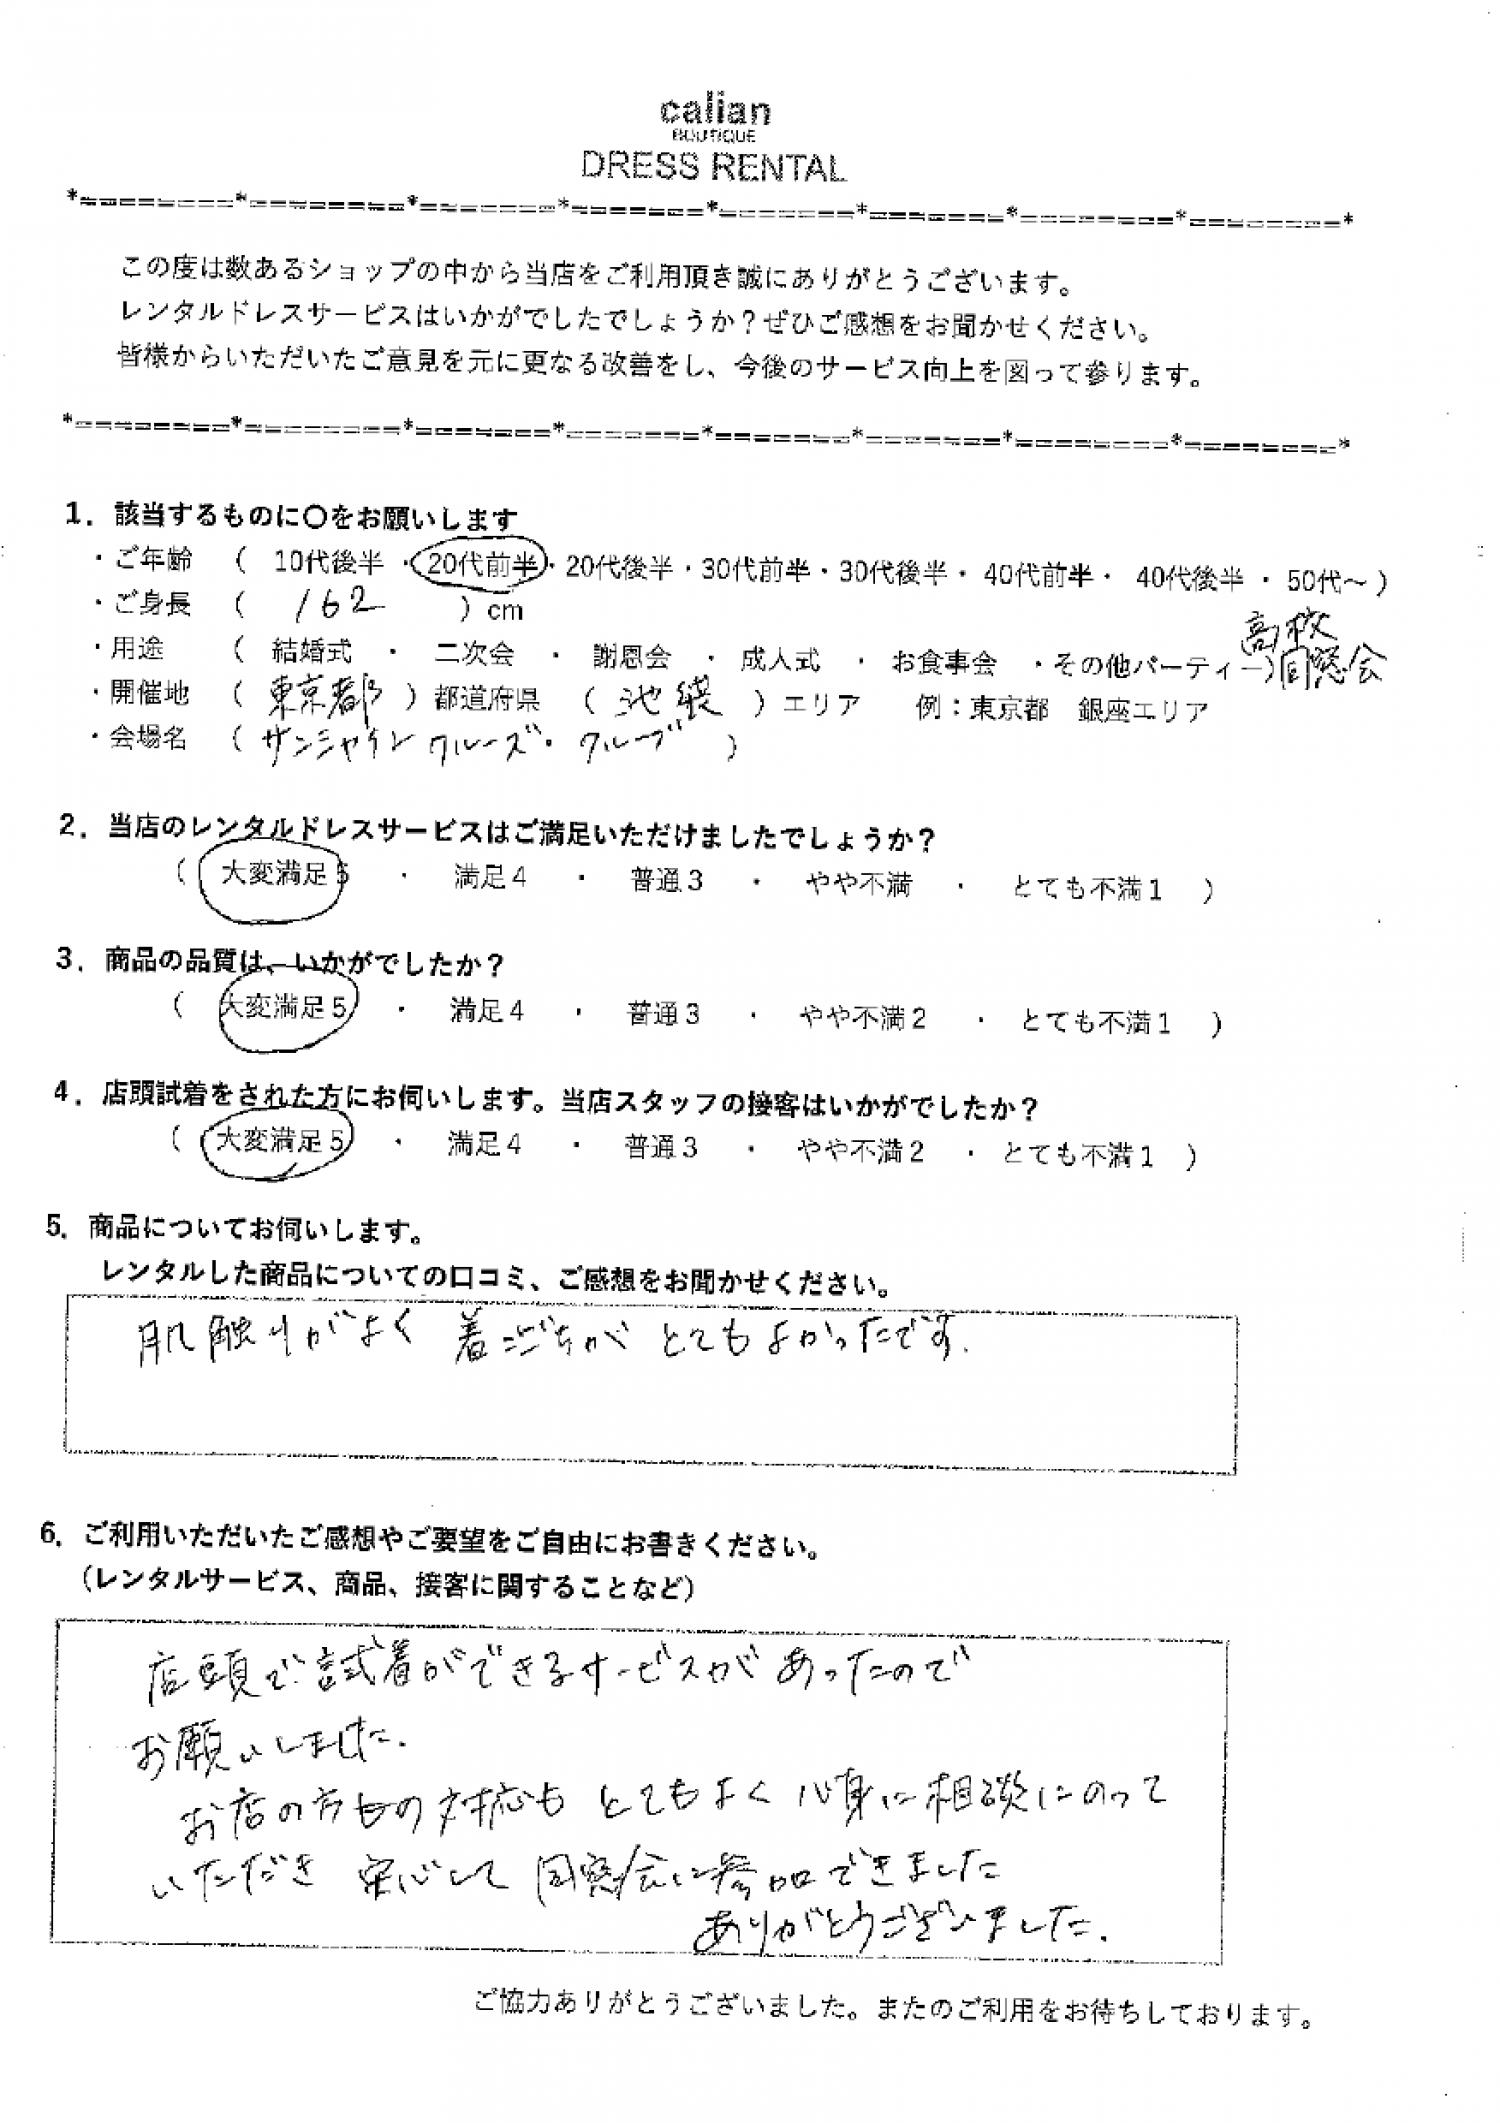 calian
BOUTIQUE
DRESS RENTAL
*=========*=========*========*========*========*========*=========*=========*
この度は数あるショップの中から当店をご利用頂き誠にありがとうございます。
レンタルドレスサービスはいかがでしたでしょうか？ぜひご感想をお聞かせください。
皆様からいただいたご意見を元に更なる改善をし、今後のサービス向上を図って参ります。
*=========*=========*========*========*========*========*=========*=========*
1．該当するものに〇をお願いします
・ご年齢 （ 10代後半 ・20代前半・20代後半・30代前半・30代後半・ 40代前半・ 40代後半 ・ 50代～ ）
・ご身長 （ 162 ）cm
・用途 （ 結婚式 ・ 二次会 ・ 謝恩会 ・ 成人式 ・ お食事会 ・その他パーティー）高校同窓会
・開催地 （ 東京都 ）都道府県 （ 池袋 ）エリア 例：東京都 銀座エリア
・会場名 （ サンシャイン クルーズ・クルーズ ）
2．当店のレンタルドレスサービスはご満足いただけましたでしょうか？
（ 大変満足5 ・ 満足4 ・ 普通3 ・ やや不満 ・ とても不満1 ）
3．商品の品質は、いかがでしたか？
（ 大変満足5 ・ 満足4 ・ 普通3 ・ やや不満2 ・ とても不満1 ）
4．店頭試着をされた方にお伺いします。当店スタッフの接客はいかがでしたか？
（ 大変満足5 ・ 満足4 ・ 普通3 ・ やや不満2 ・ とても不満1 ）
5．商品についてお伺いします。
レンタルした商品についての口コミ、ご感想をお聞かせください。
肌触りがよく 着ごごちがとてもよかったです.
6．ご利用いただいたご感想やご要望をご自由にお書きください。
（レンタルサービス、商品、接客に関することなど）
店頭で試着ができるサービスがあったので
お願いしました.
お店の方の対応もとてもよく 心身に相談にのって
いただき 安心して 同窓会に参加できました
ありがとうございました.
ご協力ありがとうございました。またのご利用をお待ちしております。